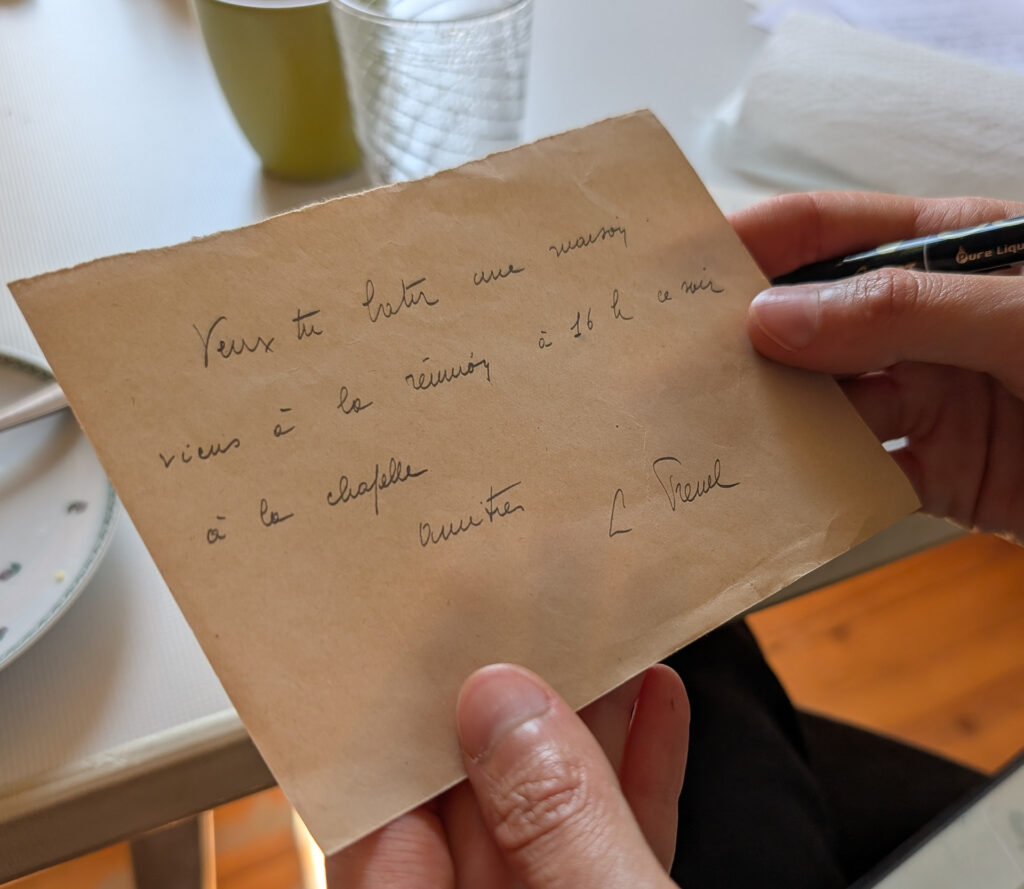 Veux tu batir une maison
viens à la réunion à 16 h ce soir
à la chapelle
amitiés L Trevel
Pure Liqu